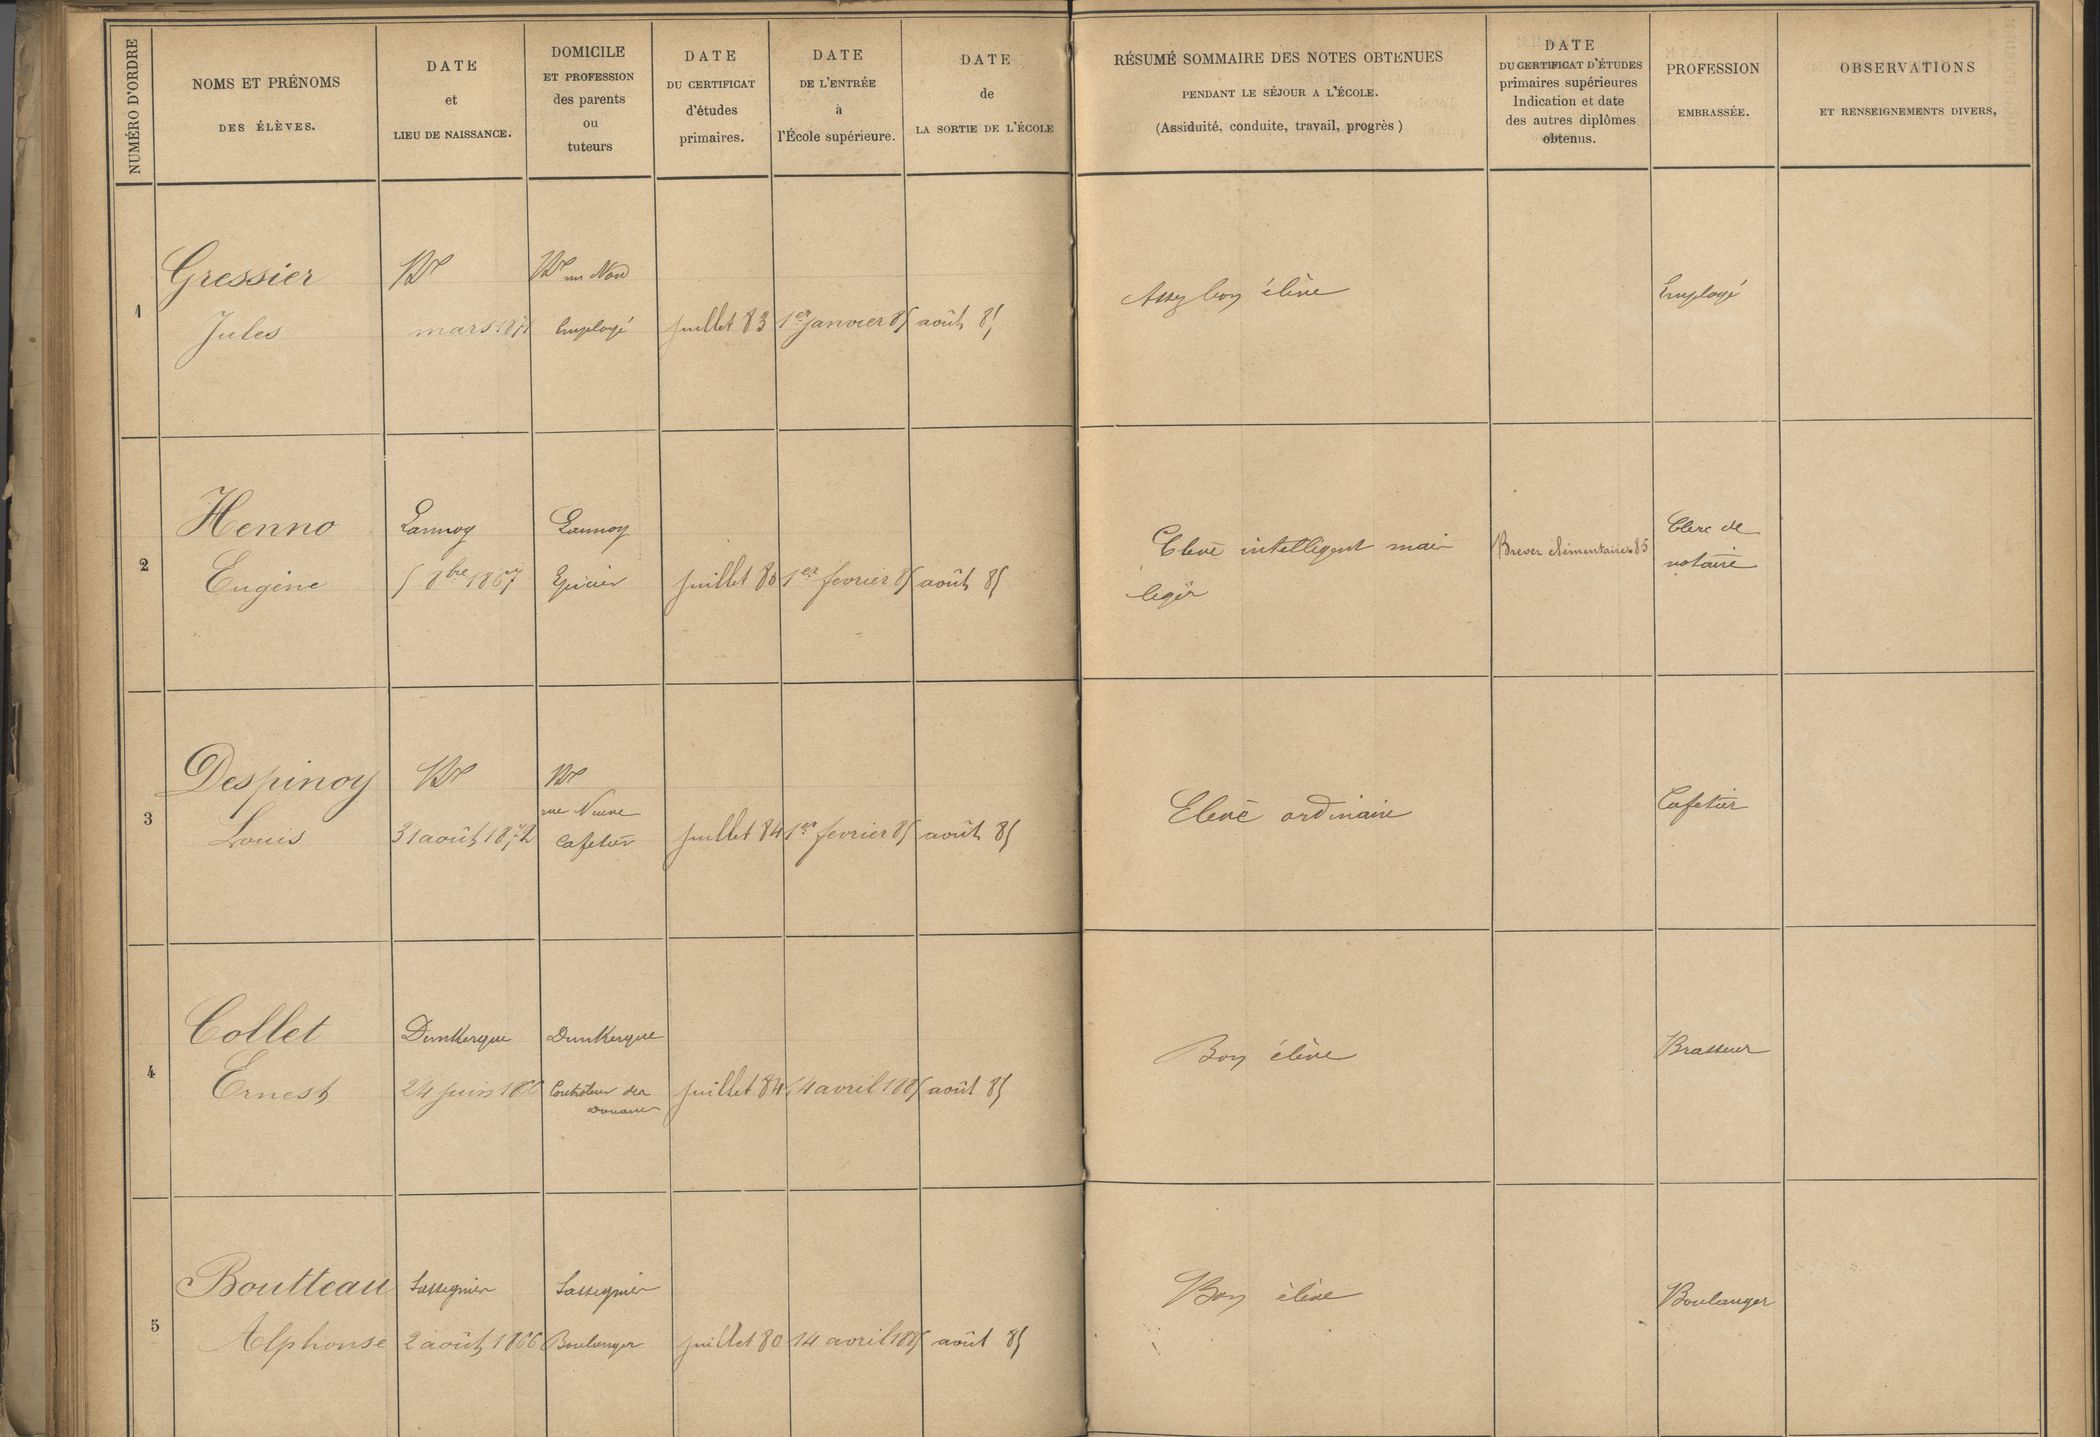 NUMÉRO D'ORDRE
NOMS ET PRÉNOMS
DES ÉLÈVES.
DATE
et
LIEU DE NAISSANCE.
DOMICILE
ET PROFESSION
des parents
ou
tuteurs
DATE
DU CERTIFICAT
d'études
primaires.
DATE
DE L'ENTRÉE
à
l'École supérieure.
DATE
de
LA SORTIE DE L'ÉCOLE
RÉSUMÉ SOMMAIRE DES NOTES OBTENUES
PENDANT LE SÉJOUR A L'ÉCOLE.
(Assiduité, conduite, travail, progrès)
DATE
DU CERTIFICAT D'ÉTUDES
primaires supérieures
Indication et date
des autres diplômes
obtenus.
PROFESSION
EMBRASSÉE.
OBSERVATIONS
ET RENSEIGNEMENTS DIVERS,
1
Gressier
Jules
mars 1871
Employé
juillet 83
1er janvier 85
août 85
Assez bon élève
Employé
2
Henno
Eugène
Lannoy
5 8bre 1867
Lannoy
Epicier
juillet 80
1er fevrier 85
août 85
Elève intelligent mais
léger
Brevet élémentaire 85
Clerc de
notaire
3
Despinoy
Louis
31 août 1872
rue Neuve
Cafetier
juillet 84
1er fevrier 85
août 85
Elève ordinaire
Cafetier
4
Collet
Ernest
Dunkerque
24 juin 1866
Dunkerque
Contrôleur des
Douanes
juillet 84
14 avril 1885
août 85
Bon élève
Brasseur
5
Boutteau
Alphonse
Sassegnies
2 août 1866
Sassegnies
Boulanger
juillet 80
14 avril 1885
août 85
Bon élève
Boulanger